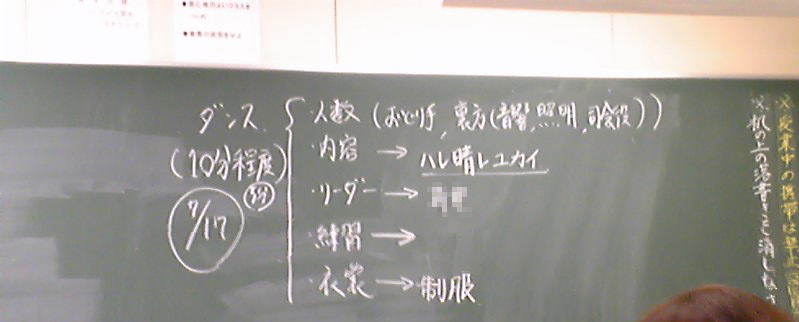 ダンス
(10分程度)
5分
7/17
・人数 (おどり手, 裏方(音響, 照明, 司会役))
・内容 → ハレ晴レユカイ
・リーダー →
・練習 →
・衣裳 → 制服
※授業中の携帯は禁止
※机の上の落書きを消しなさ